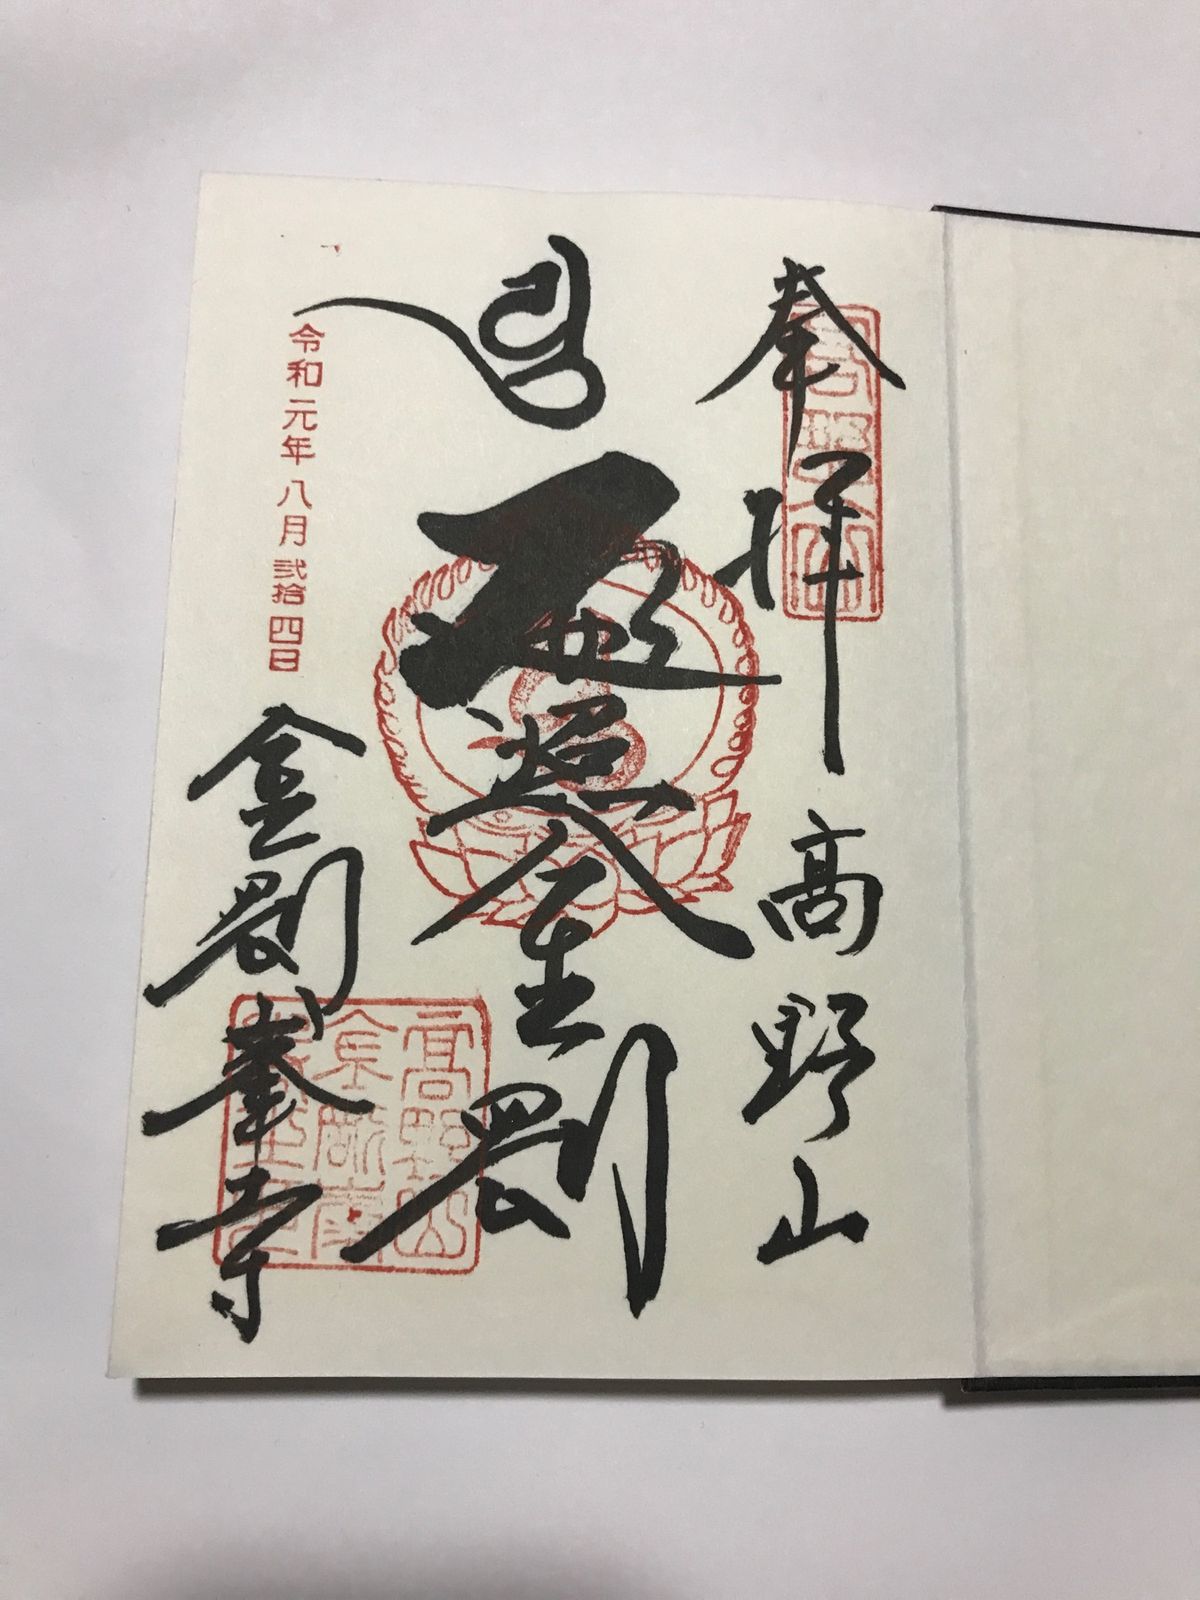 奉拝
高野山
遍照金剛
令和元年八月弐拾四日
金剛峯寺
高野山
金剛峯